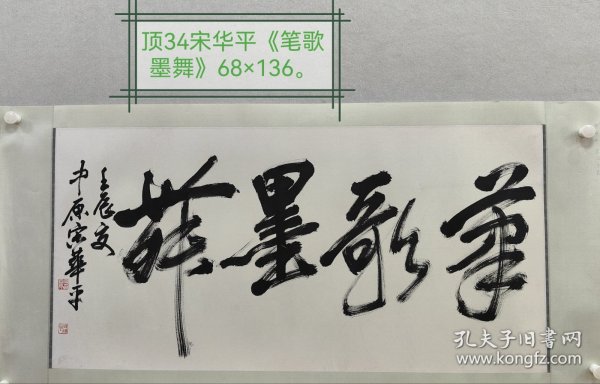 顶34宋华平《笔歌
墨舞》68×136。
筆歌墨舞
壬辰夏
中原宋華平
孔夫子旧书网
www.kongfz.com